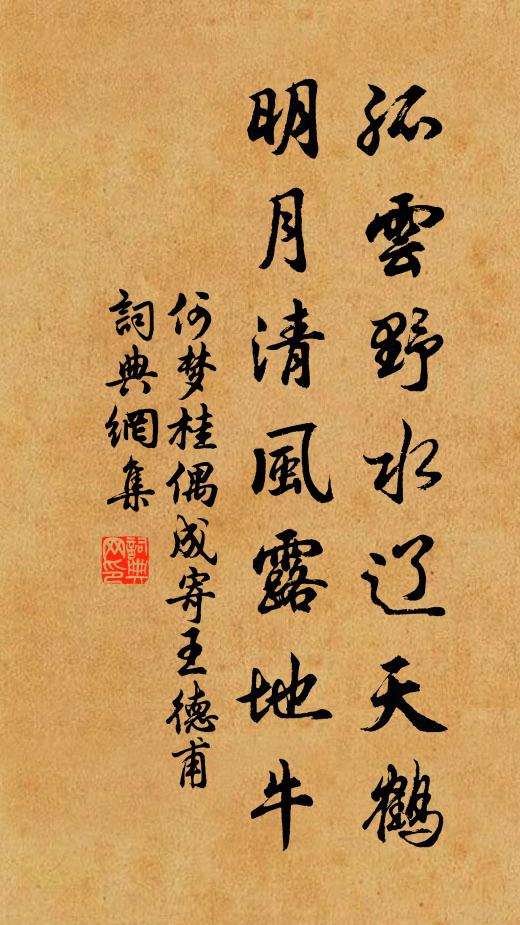 孤雲野水辽天鶴
明月清風露地牛
何梦桂偶成寄王德甫
詞典網集
詞典網印